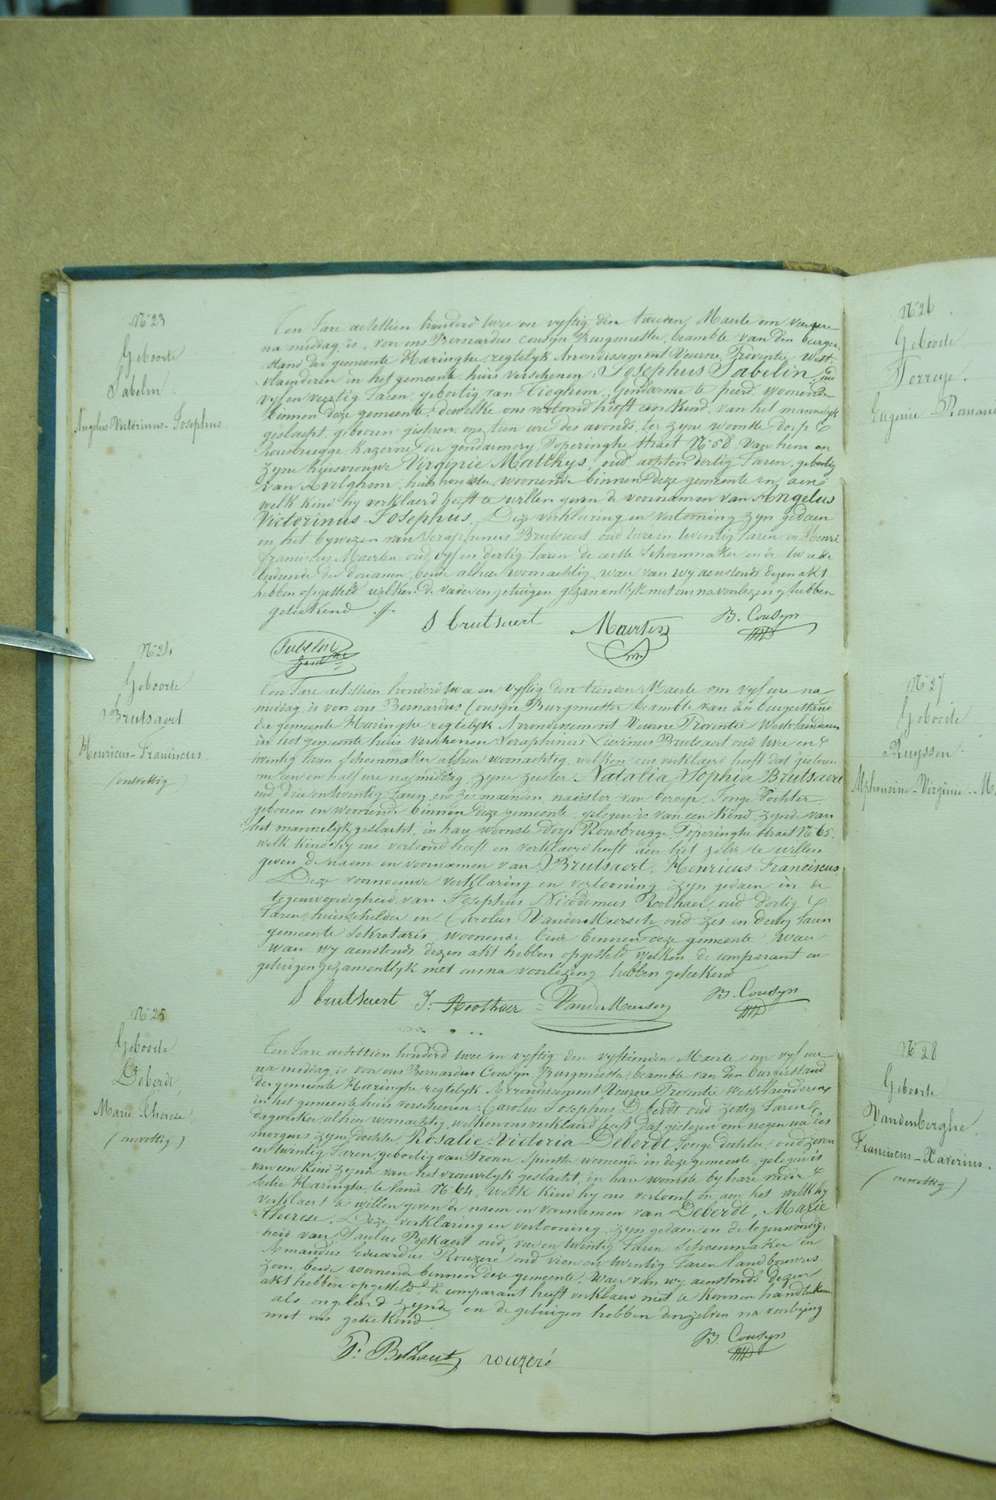 N° 23
Geboorte
Sabelin
Angelus Victorinus - Josephus
Ten Jare achttien honderd twee en vyftig den tienden Maerte om vier ure
na middag, is, voor ons Bernardus Cousyn Burgmeester, beambte van den burger-
stand der gemeente Haringhe, regtelyk Arrondissement Veurne, Provintie West-
vlaenderen in het gemeente huis verschenen, Josephus Sabelin, oud
vyf en veertig Jaren, geboortig van Tieghem, Gendarme te peerd, woonende
binnen deze gemeente, dewelke ons vertoond heeft een kind, van het mannelyk
geslacht, geboren gisteren om tien ure des avonds, ter zyne woonste dorp
Rousbrugge kazerne der gendarmery Poperinghe straet N° 58, van hem en
zyne huisvrouwe Virginie Matthys, oud achten dertig Jaren, geboortig
van Avelghem, woonende binnen deze gemeente, en aen
welk kind hy verklaerd heeft te willen geven de voornamen van Angelus
Victorinus Josephus. Deze verklaring en vertooning zyn gedaen
in het bywezen van Seraphinus Brutsaert oud twee en twintig Jaren en Henri
Franciscus Maerten oud vyf en dertig Jaren de eerste Schoenmaker en de tweede
bediende der douanen, beide alhier woonachtig, waer van wy aenstonds dezen akt
hebben opgesteld welken de vader en getuigen gezamentlyk met ons na voorlezing hebben
geteekend
S brutsaert Maerten B. Cousyn
Sabelin
N° 24
Geboorte
Brutsaert
Henricus - Franciscus
(onwettig)
Ten Jare achttien honderd twee en vyftig den tienden Maerte om vyf ure na
middag, is voor ons Bernardus Cousyn Burgmeester beambte van den burgerstand
der gemeente Haringhe regtelyk Arrondissement Veurne Provintie Westvlaenderen
in het gemeente huis verschenen Seraphinus Livinus Brutsaert oud twee en
twintig Jaren schoenmaker alhier woonachtig, welken ons verklaerd heeft dat gisteren
om een en half ure na middag, zyne zuster Natalia Sophia Brutsaert
oud drie en twintig Jaren, naeister van beroep, Jonge Dochter
geboren en woonende binnen deze gemeente, gelegen is van een kind zynde van
het mannelyk geslacht, in hare woonste dorp Rousbrugge, Poperinghe straet N° 65,
welk kind hy ons vertoond heeft en verklaerd heeft aen het zelve te willen
geven de naem en voornamen van Brutsaert, Henricus Franciscus
Deze voornoemde verklaring en vertooning zyn gedaen in de
tegenwoordigheid van Josephus Nicodemus Roothaer oud dertig
Jaren, huisschilder en Carolus Vander Meersch, oud zes en dertig Jaren
gemeente sekretaris, woonende beide binnen deze gemeente. Waer
van wy aenstonds dezen akt hebben opgesteld welken de comparant en
getuigen gezamentlyk met ons na voorlezing hebben geteekend
S brutsaert J. Roothaer VanderMeersch B. Cousyn
N° 25
Geboorte
Deberdt
Marie Therese
(onwettig)
Ten Jare achttien honderd twee en vyftig den vyftienden Maerte om vyf ure
na middag, is voor ons Bernardus Cousyn Burgmeester, beambte van den burgerstand
der gemeente Haringhe regtelyk Arrondissement Veurne Provintie Westvlaenderen
in het gemeente huis verschenen, Carolus Josephus Deberdt oud zestig Jaren
dagwerker, alhier woonachtig, welken ons verklaerd heeft dat gisteren om negen ure des
morgens zyne dochter Rosalie Victoria Deberdt, Jonge dochter, oud zeven
en twintig Jaren, geboortig van woonende in deze gemeente, gelegen is
van een kind zynde van het vrouwelyk geslacht, in hare woonste by hare vader
sectie Haringhe te lande N° 64, welk kind hy ons vertoond en aen het welk hy
verklaert te willen geven de naem en voornamen van Deberdt, Marie
Therese. Deze verklaring en vertooning zyn gedaen in de tegenwoordig-
heid van Paulus oud vier en twintig Jaren Schoenmaker en
Armandus Eduardus Rouzeré, oud vier en twintig Jaren landbouwers
zoon, beide woonende binnen deze gemeente. Waer van wy aenstonds dezen
akt hebben opgesteld, de comparant heeft verklaerd niet te konnen handteekenen
als ongeleerd zynde, en de getuigen hebben denzelven na voorlezing
met ons geteekend
rouzeré B Cousyn
N° 26
Geboorte
Terreye
Eugenie
N° 27
Geboorte
Ruyssen
Alphonsine - Virginie
N° 28
Geboorte
Vandenberghe
Franciscus - Xaverius
(onwettig)